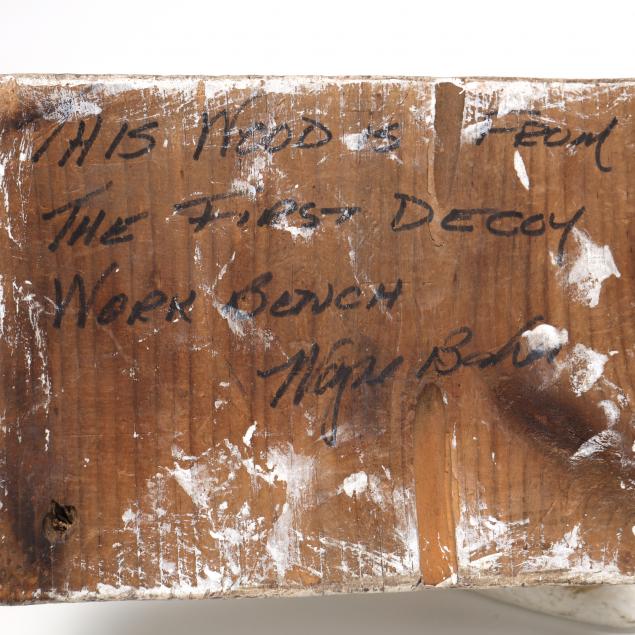 THIS WOOD IS FROM
THE FIRST DECOY
WORK BENCH
Wayne